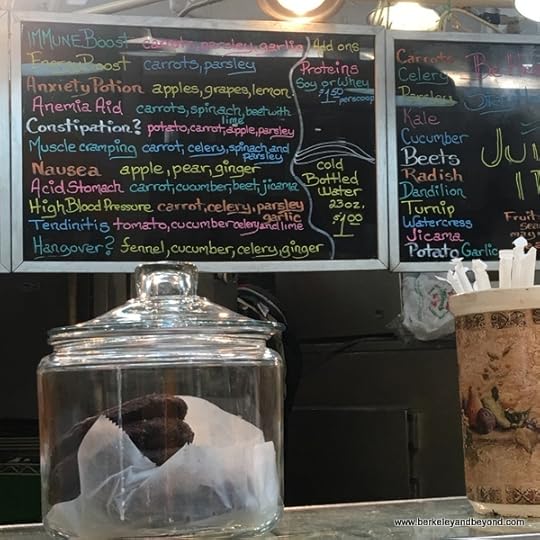 IMMUNE BOOST carrots, parsley, garlic
Energy Boost carrots, parsley
Anxiety Potion apples, grapes, lemon
Anemia Aid carrots, spinach, beet with lime
Constipation? potato, carrot, apple, parsley
Muscle cramping carrot, celery, spinach, and parsley
Nausea apple, pear, ginger
Acid Stomach carrot, cucumber, beet, jicama
High Blood Pressure carrot, celery, parsley garlic
Tendinitis tomato, cucumber celery and lime
Hangover? fennel, cucumber, celery, ginger
Add ons
Proteins
Soy or Whey
$1.50
per scoop
cold
Bottled
Water
23 oz.
$1.00
Carrots
Celery
Parsley
Kale
Cucumber
Beets
Radish
Dandilion
Turnip
Watercress
Jicama
Potato Garlic
www.berkeleyandbeyond.com